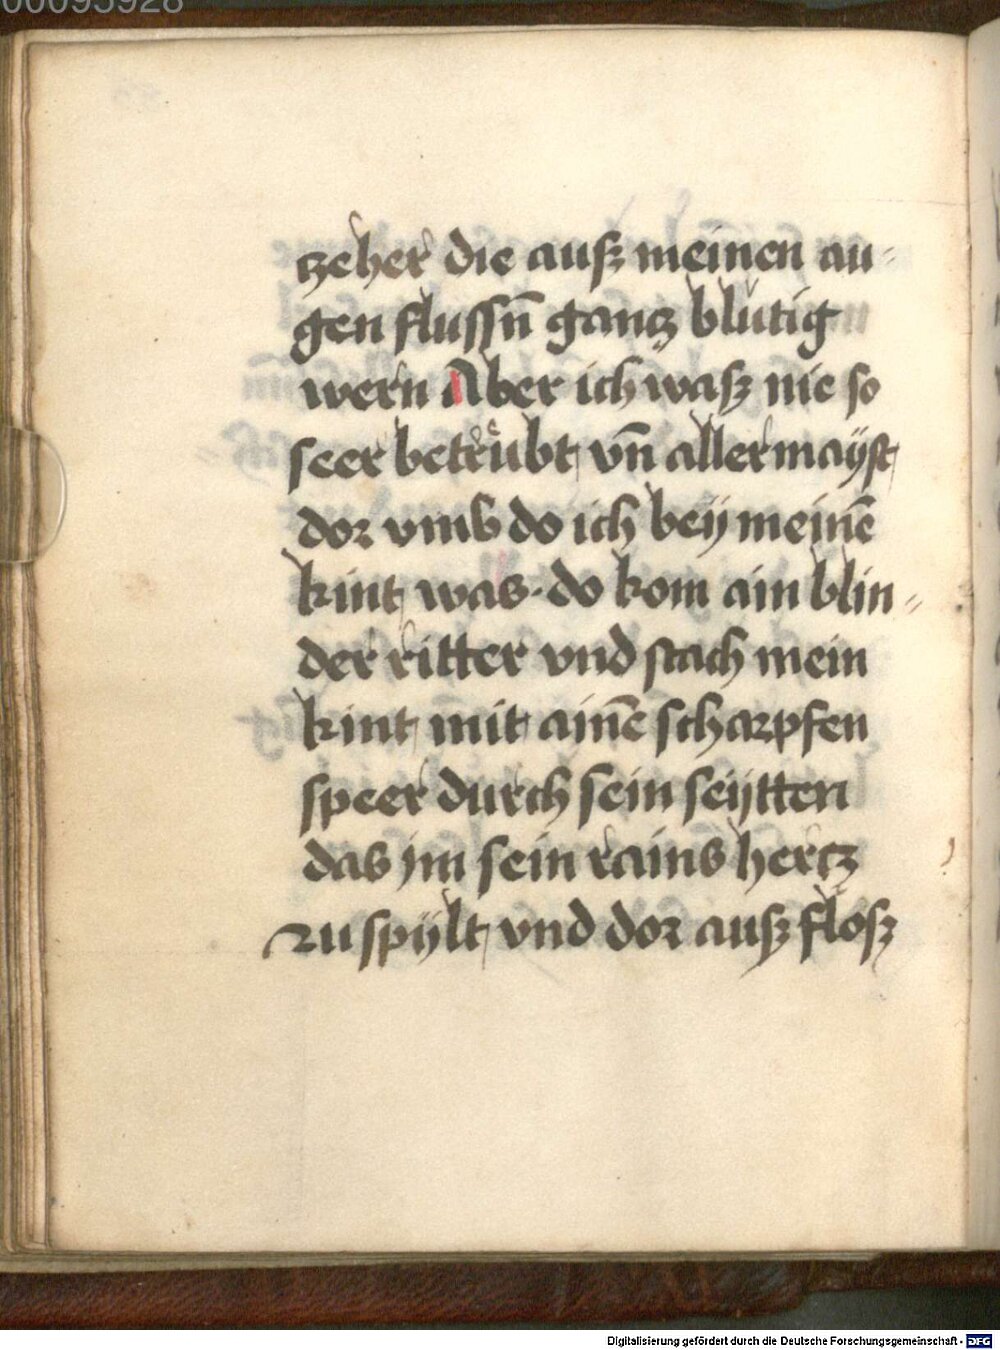 00095928
tzeher die auß meinen au-
gen flussn̄ gantz blutig
wern Aber ich waß nie so
seer betrůbt vn̄ allermaÿst
dor vmb do ich beÿ meinē
kint was · do kom ain blin=
der ritter vnd stach mein
kint mit ainē scharpfen
speer durch sein seÿtten
das jm sein rains hertz
zu spÿlt vnd dor auß floß
Digitalisierung gefördert durch die Deutsche Forschungsgemeinschaft - DFG